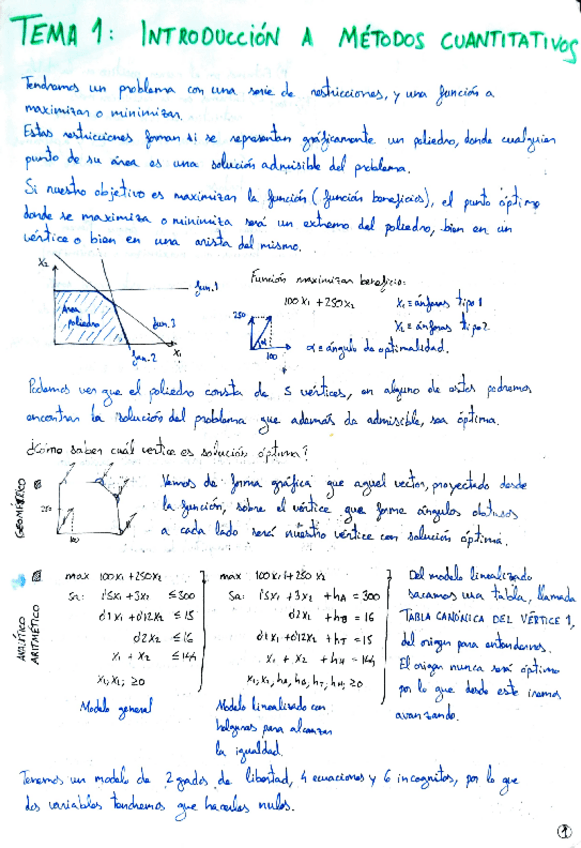 TEMA 1: INTRODUCCIÓN A MÉTODOS CUANTITATIVOS
Tendremos un problema con una serie de restricciones, y una función a
maximizar o minimizar.
Estas restricciones forman si se representan gráficamente un poliedro, donde cualquier
punto de su área es una solución admisible del problema.
Si nuestro objetivo es maximizar la función (función beneficios), el punto óptimo
donde se maximiza o minimiza será un extremo del poliedro, bien en un
vértice o bien en una arista del mismo.
X₂
Área
poliedro
fun.1
fun.3
fun.2
X₁
Función maximizar beneficio:
100X₁ + 250X₂
X₁ = ánforas tipo 1
X₂ = ánforas tipo 2
250
α
100
α = ángulo de optimalidad.
Podemos ver que el poliedro consta de 5 vértices, en alguno de estos podremos
encontrar la solución del problema que además de admisible, sea óptima.
¿Cómo saber cuál vértice es solución óptima?
GEOMÉTRICO
250
100
Vemos de forma gráfica que aquel vector, proyectado desde
la función, sobre el vértice que forme ángulos obtusos
a cada lado será nuestro vértice con solución óptima.
ANALÍTICO
ARITMÉTICO
max 100X₁ + 250X₂
sa: 1'5X₁ + 3X₂ ≤ 300
0'1X₁ + 0'12X₂ ≤ 15
0'2X₂ ≤ 16
X₁ + X₂ ≤ 144
X₁, X₂, ≥ 0
Modelo general
max 100X₁ + 250X₂
sa: 1'5X₁ + 3X₂ + hA = 300
0'2X₂ + hB = 16
0'1X₁ + 0'12X₂ + hT = 15
X₁ + X₂ + hH = 144
X₁, X₂, hA, hB, hT, hH, ≥ 0
Modelo linealizado con
holguras para alcanzar
la igualdad.
Del modelo linealizado
sacamos una tabla, llamada
TABLA CANÓNICA DEL VÉRTICE 1,
del origen para entendernos.
El origen nunca será óptimo
por lo que desde este iremos
avanzando.
Tenemos un modelo de 2 grados de libertad, 4 ecuaciones y 6 incognitas, por lo que
dos variables tendremos que hacerlas nulas.
1